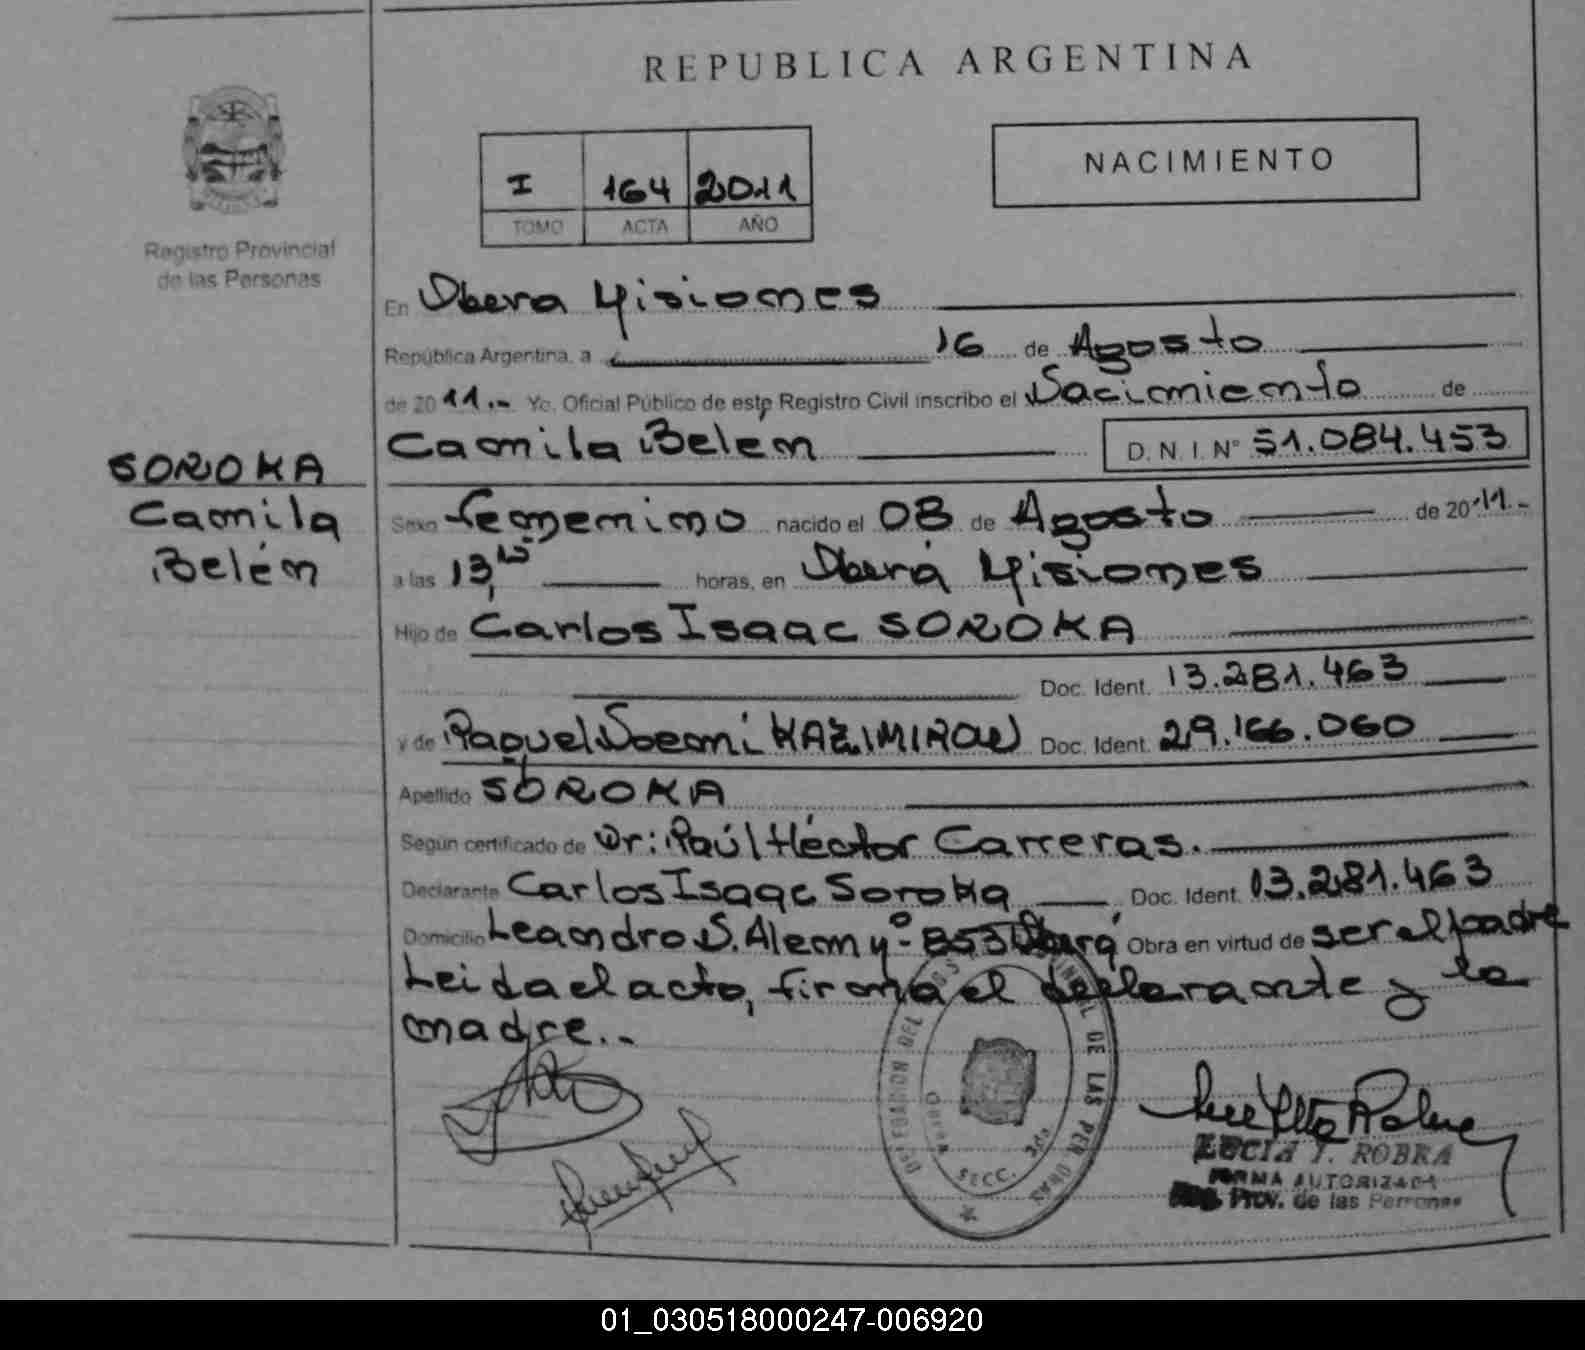 REPUBLICA ARGENTINA
I 164 2011
TOMO ACTA AÑO
NACIMIENTO
Registro Provincial
de las Personas
En Oberá Misiones
República Argentina, a 16 de Agosto
de 2011.- Yo, Oficial Público de este Registro Civil inscribo el Nacimiento de
Camila Belén D.N.I. Nº 51.084.453
SOROKA
Camila
Belén
Sexo femenino nacido el 08 de Agosto de 2011.-
a las 13, horas, en Oberá Misiones
Hijo de Carlos Isaac SOROKA
Doc. Ident. 13.281.463
y de Raquel Noemi KAZIMIROW Doc. Ident. 29.166.060
Apellido SOROKA
Según certificado de Dr: Raúl Héctor Carreras.
Declarante Carlos Isaac Soroka Doc. Ident. 13.281.463
Domicilio Leandro N. Alem y º- 853 Oberá Obra en virtud de ser el padre
Leida el acto, firma el declarante y la
madre..
DELEGACION DEL DE LAS PERSONAS
SECC. 2da
LUCIA T. ROBRA
FIRMA AUTORIZADA
Reg. Prov. de las Personas
01_030518000247-006920